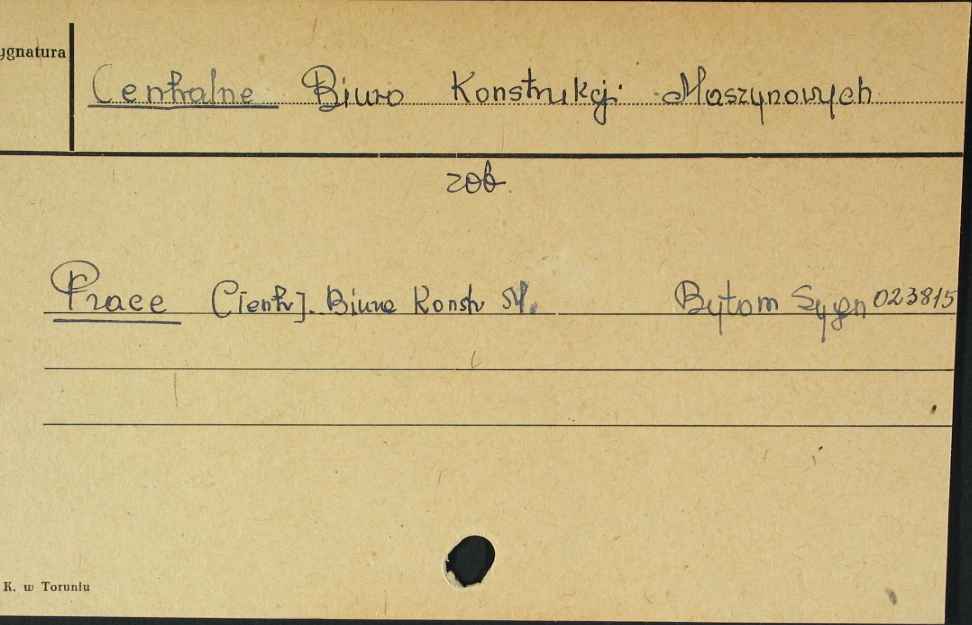 ygnatura
Centralne Biuro Konstrukcji Maszynowych
zob.
Prace C[entr]. Biura Konstr M. Bytom Sygn 023815
K. w Toruniu